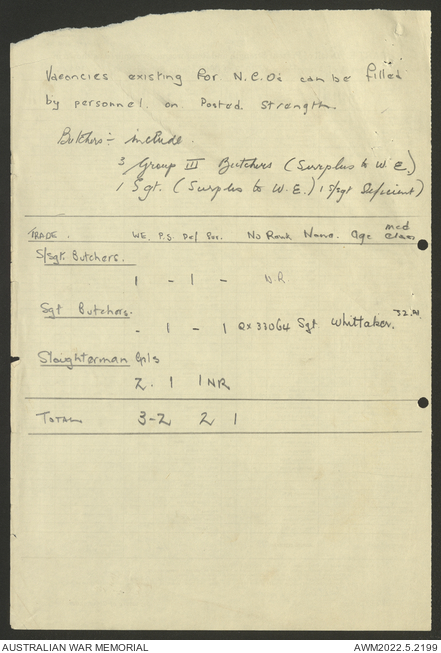 Vacancies existing for N.C.Os can be filled
by personnel on Posted Strength.
Butchers:- include
3 Group III Butchers (Surplus to W.E.)
1 Sgt. (Surplus to W.E.) 1 S/Sgt deficient)
TRADE. WE. P.S. Def Sur. No Rank Name. Age med Class
S/Sgt. Butchers.
1 - 1 - N.R.
Sgt Butchers.
- 1 - 1 QX33064 Sgt. Whittaker. 32. A1
Slaughterman Cpls
2. 1 1 NR
TOTAL 3-2 2 1
AUSTRALIAN WAR MEMORIAL AWM2022.5.2199